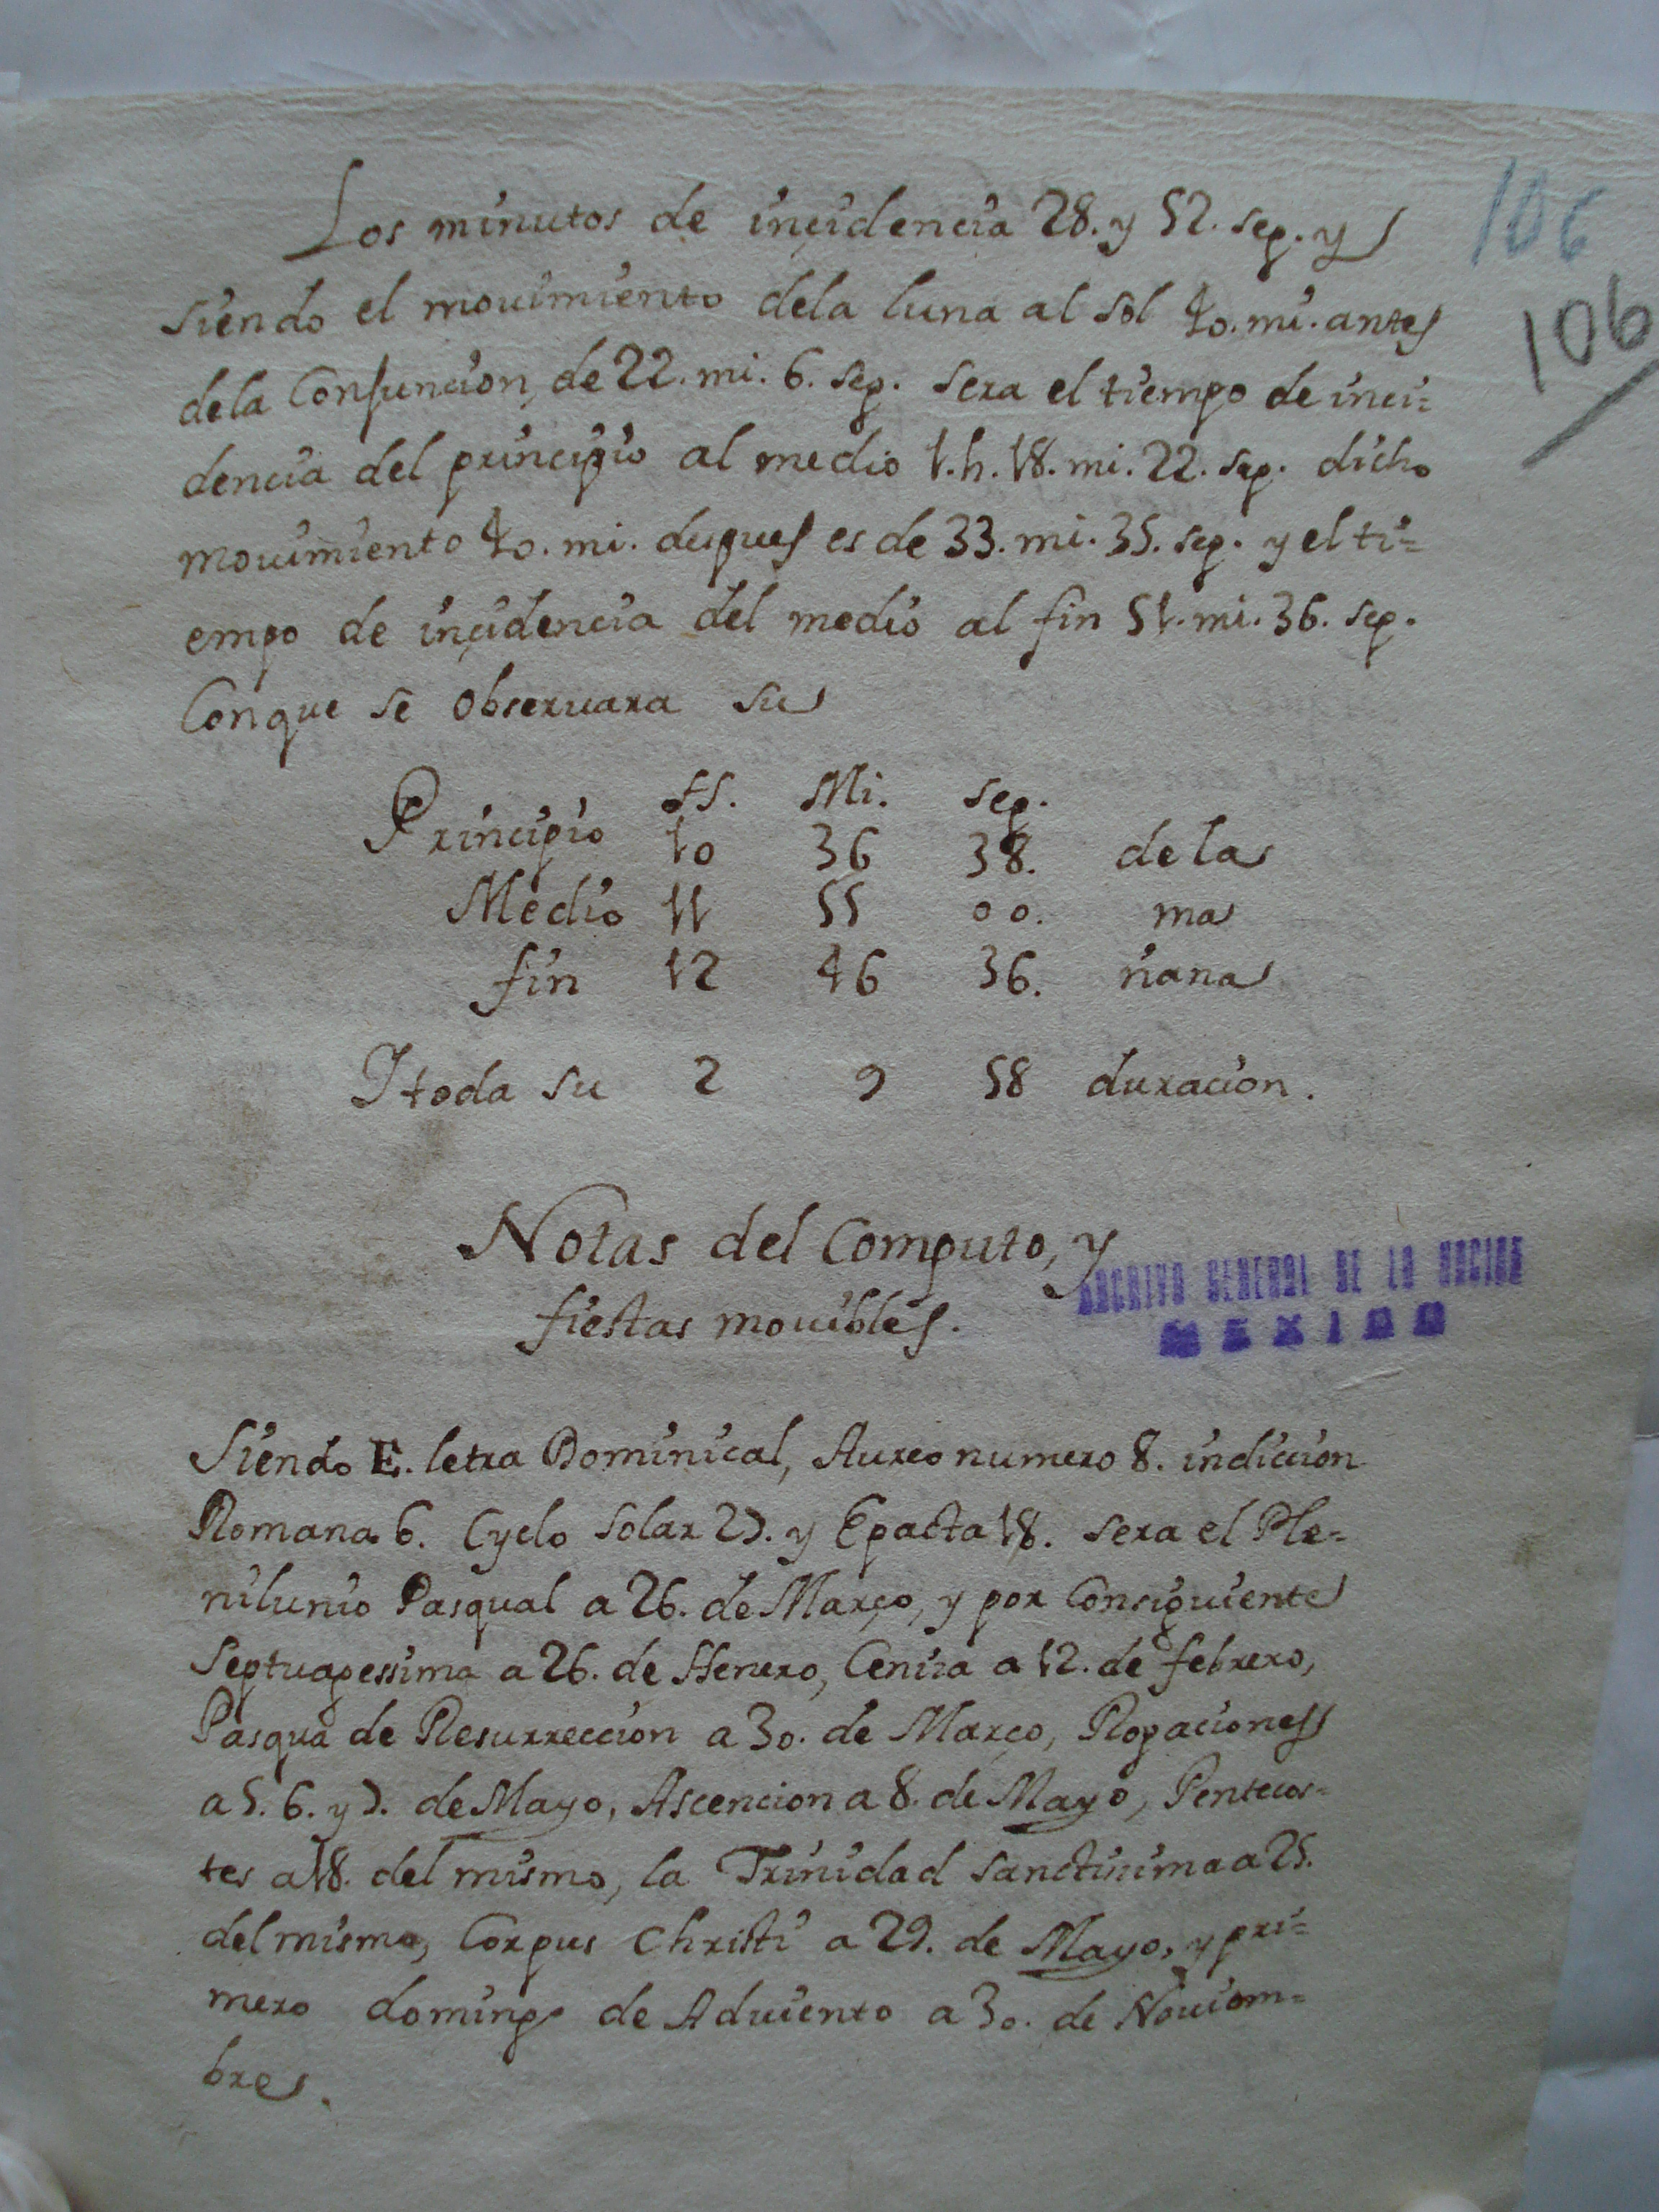 106
106
Los minutos de inçidencia 28. y 52. seg. y
siendo el mouimiento dela luna al sol 40. mi. antes
dela Conjuncion, de 22. mi. 6. seg. sera el tiempo de inci=
dencia del principio al medio 1. h. 18. mi. 22. seg. dicho
mouimiento 40. mi. despues es de 33. mi. 35. seg. y el ti=
empo de inçidencia del medio al fin 51. mi. 36. seg.
Conque se obseruara su
HS. Mi. seg.
Principio 10 36 38. de la
Medio 11 55 00. ma
fin 12 46 36. ñana
Y toda su 2 9 58 duracion.
Notas del Computo, y
fiestas mouibles.
ARCHIVO GENERAL DE LA NACION
MEXICO
Siendo E. letra Dominical, Aureo numero 8. indiccion
Romana 6. Cyclo solar 27. y Epacta 18. sera el Ple=
nilunio Pasqual a 26. de Março, y por Consiguiente
Septuagessima a 26. de Henero, Ceniza a 12. de febrero,
Pasqua de Resurreccion a 30. de Março, Rogaciones
a 5. 6. y 7. de Mayo, Ascencion a 8. de Mayo, Pentecos=
tes a 18. del mismo, la Trinidad sanctissima a 25.
del mismo, Corpus Christi a 29. de Mayo, y pri=
mero domingo de Aduiento a 30. de Nouiem=
bre.